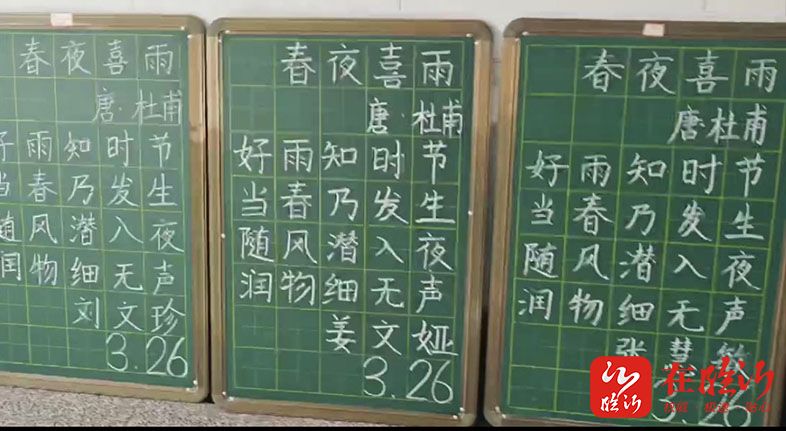 春夜喜雨
唐·杜甫
好雨知时节
当春乃发生
随风潜入夜
润物细无声
刘文珍
3.26
春夜喜雨
唐·杜甫
好雨知时节
当春乃发生
随风潜入夜
润物细无声
姜文娅
3.26
春夜喜雨
唐杜甫
好雨知时节
当春乃发生
随风潜入夜
润物细无声
张慧
3.26
在临沂